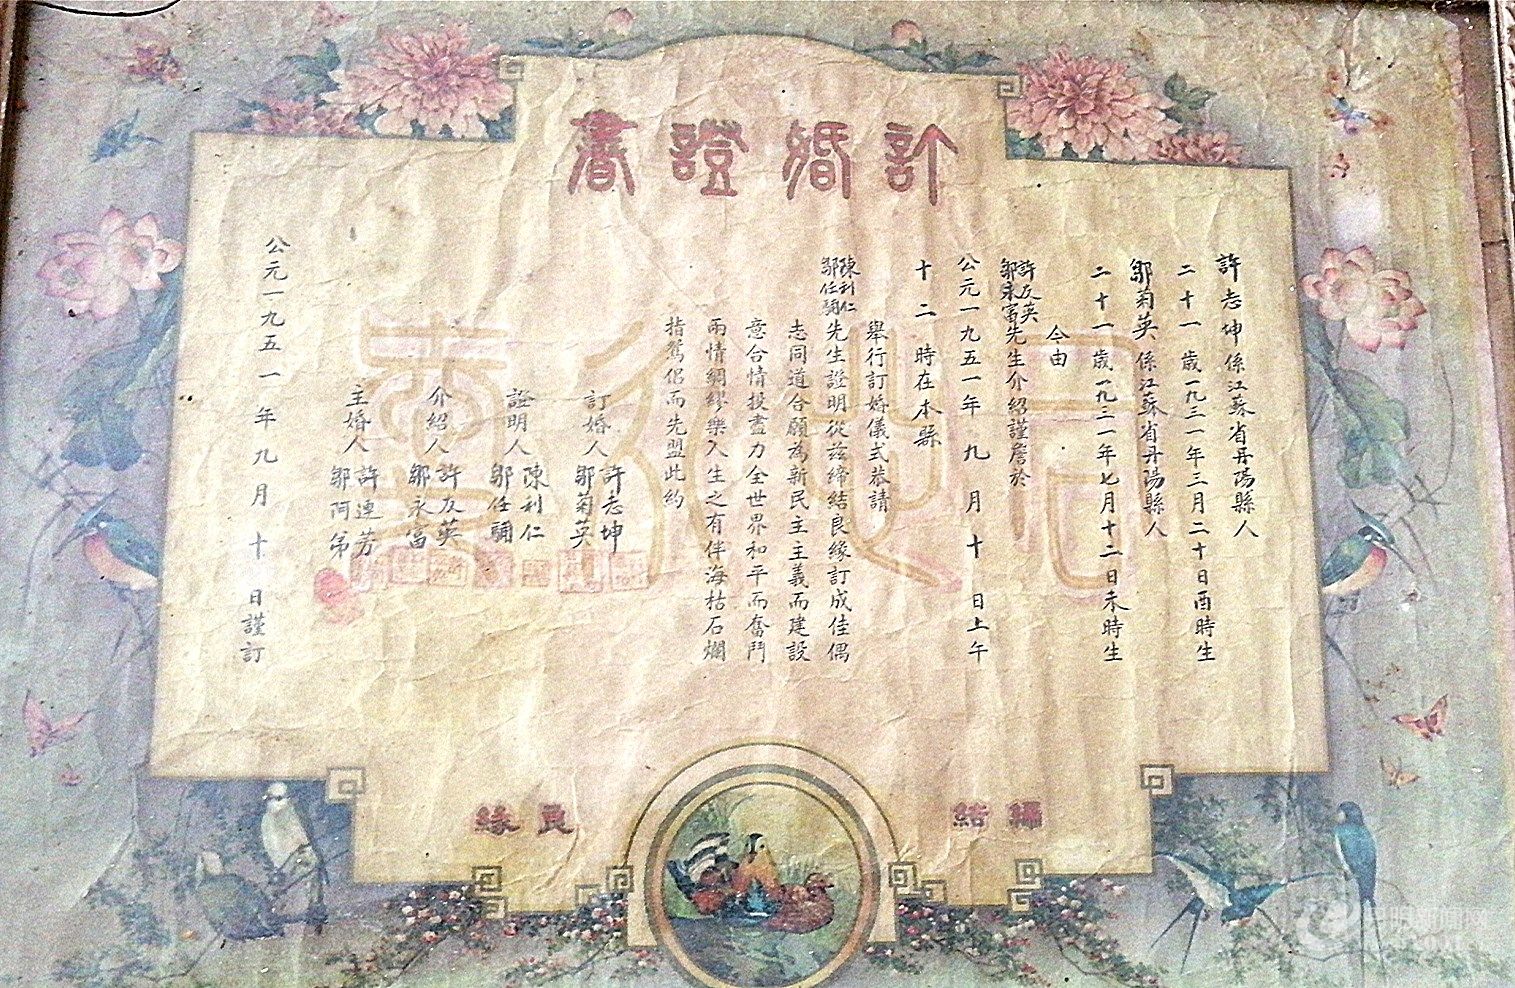 訂婚證書
許志坤係江蘇省丹陽縣人
二十一歲一九三一年三月二十日酉時生
鄒菊英係江蘇省丹陽縣人
二十一歲一九三一年七月十二日未時生
今由
許反英
鄒永富
先生介紹謹詹於
公元一九五一年九月十日上午
十二時在本縣
舉行訂婚儀式恭請
陳利仁
鄒任彌
先生證明從茲締結良緣訂成佳偶
志同道合願為新民主主義而建設
意合情投盡力全世界和平而奮鬥
兩情綢繆樂入生之有伴海枯石爛
指鴛侶而先盟此約
訂婚人
許志坤
鄒菊英
證明人
陳利仁
鄒任彌
介紹人
許反英
鄒永富
主婚人
許連芳
鄒阿
公元一九五一年九月十日謹訂
締結
良緣
昆明新闻网